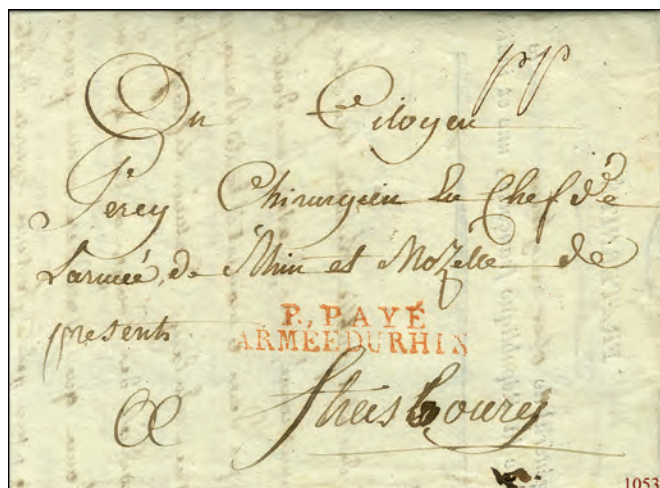 Au Citoyen pp
Percy Chirurgien En Chef de
Larmée de Rhin et Mozelle de
present
P. PAYÉ
ARMEE DU RHIN
a Strasbourg
1053